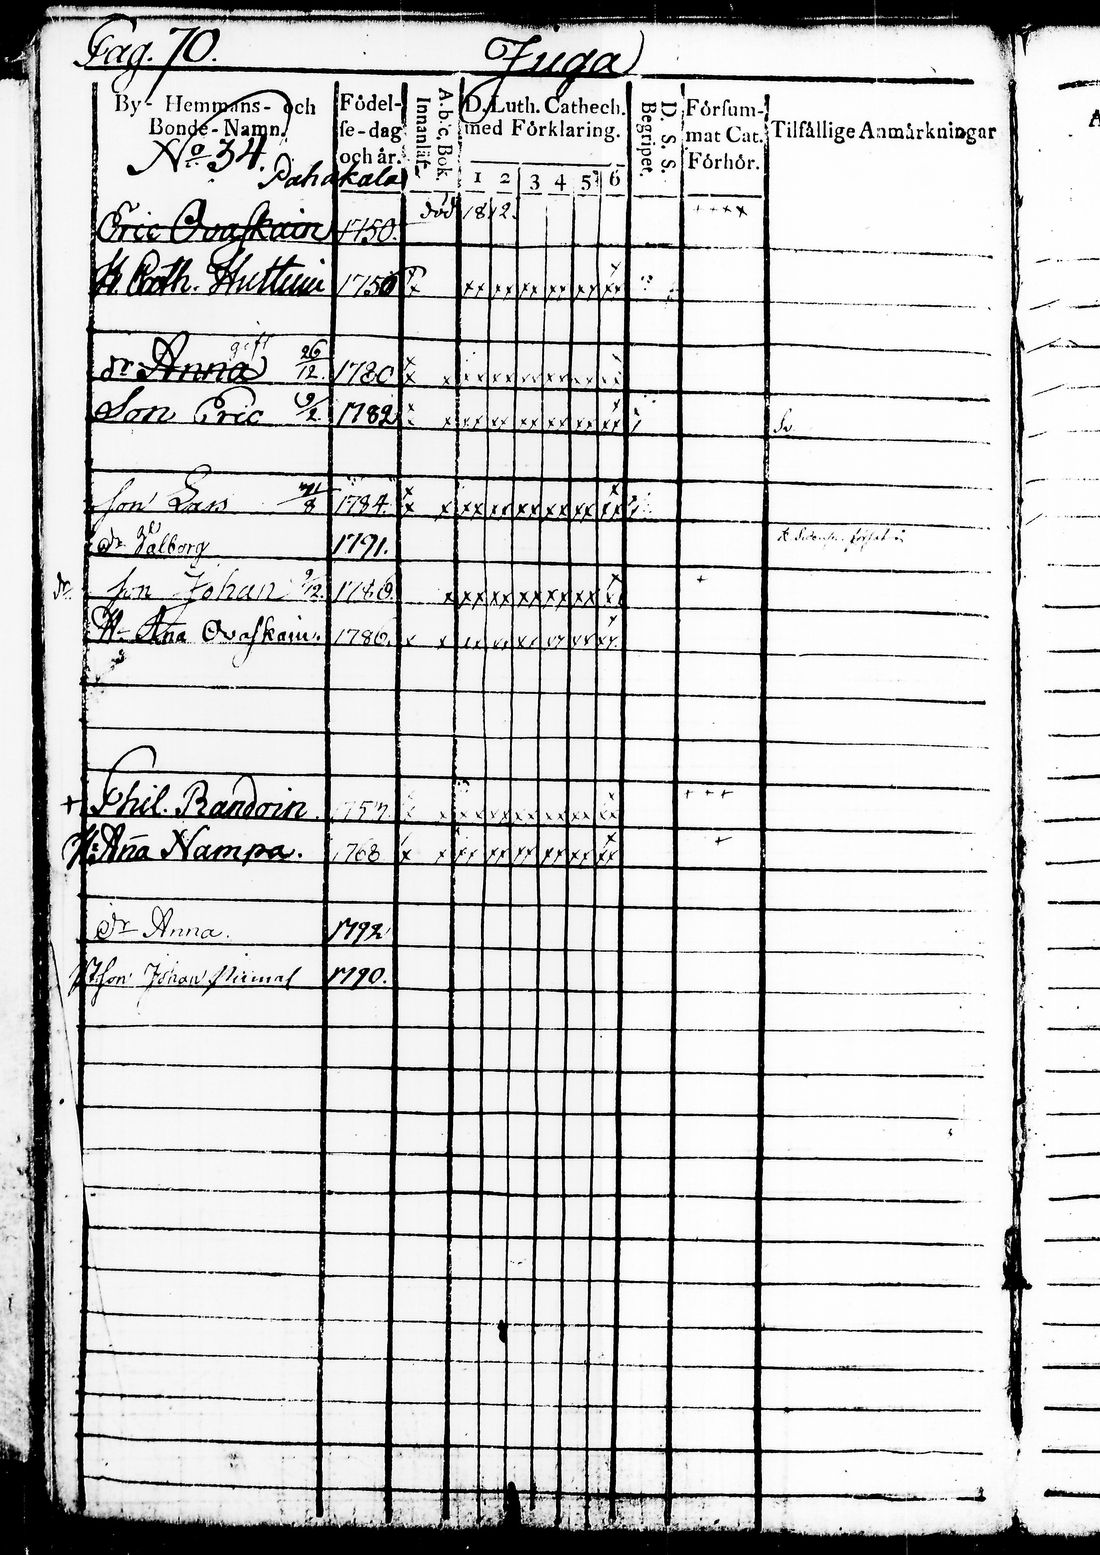 Pag. 70. Juga
By- Hemmans- och Bonde-Namn.
Födel-se-dag och år.
Innanläst.
A.b.c. Bok.
D. Luth. Cathech. med Förklaring.
1 2 3 4 5 6
Begripet.
D. S. S.
Försum-mat Cat. Förhör.
Tilfällige Anmärkningar
No 34. Pahakala
Eric Ovaskain 1750. död 1812. ++++
H. Cath. Huttuin 1750
gift
dr Anna 26/12 1780
Son Eric 9/2 1782
son Lars 1784
dr Valborg 1791.
dr. son Johan 9/12 1786 +
H. Ana Ovaskain. 1786.
+ Phil. Randoin. 1757. +++
H: Aña Nampa. 1768 +
dr Anna. 1792
son Johan 1790.